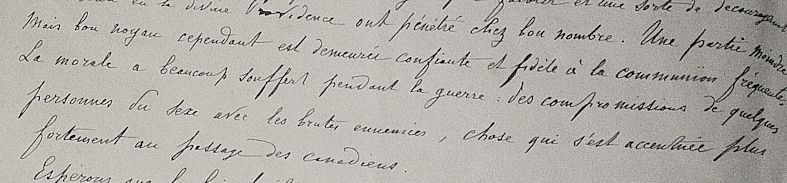 en la divine Providence ont pénétré chez bon nombre. Une partie moindre
mais bon noyau cependant est demeurée confiante et fidèle à la communion fréquente.
La morale a beaucoup souffert pendant la guerre : des compromissions de quelques
personnes du sexe avec les brutes ennemies, chose qui s'est accentuée plus
fortement au passage des canadiens.
Espérons que